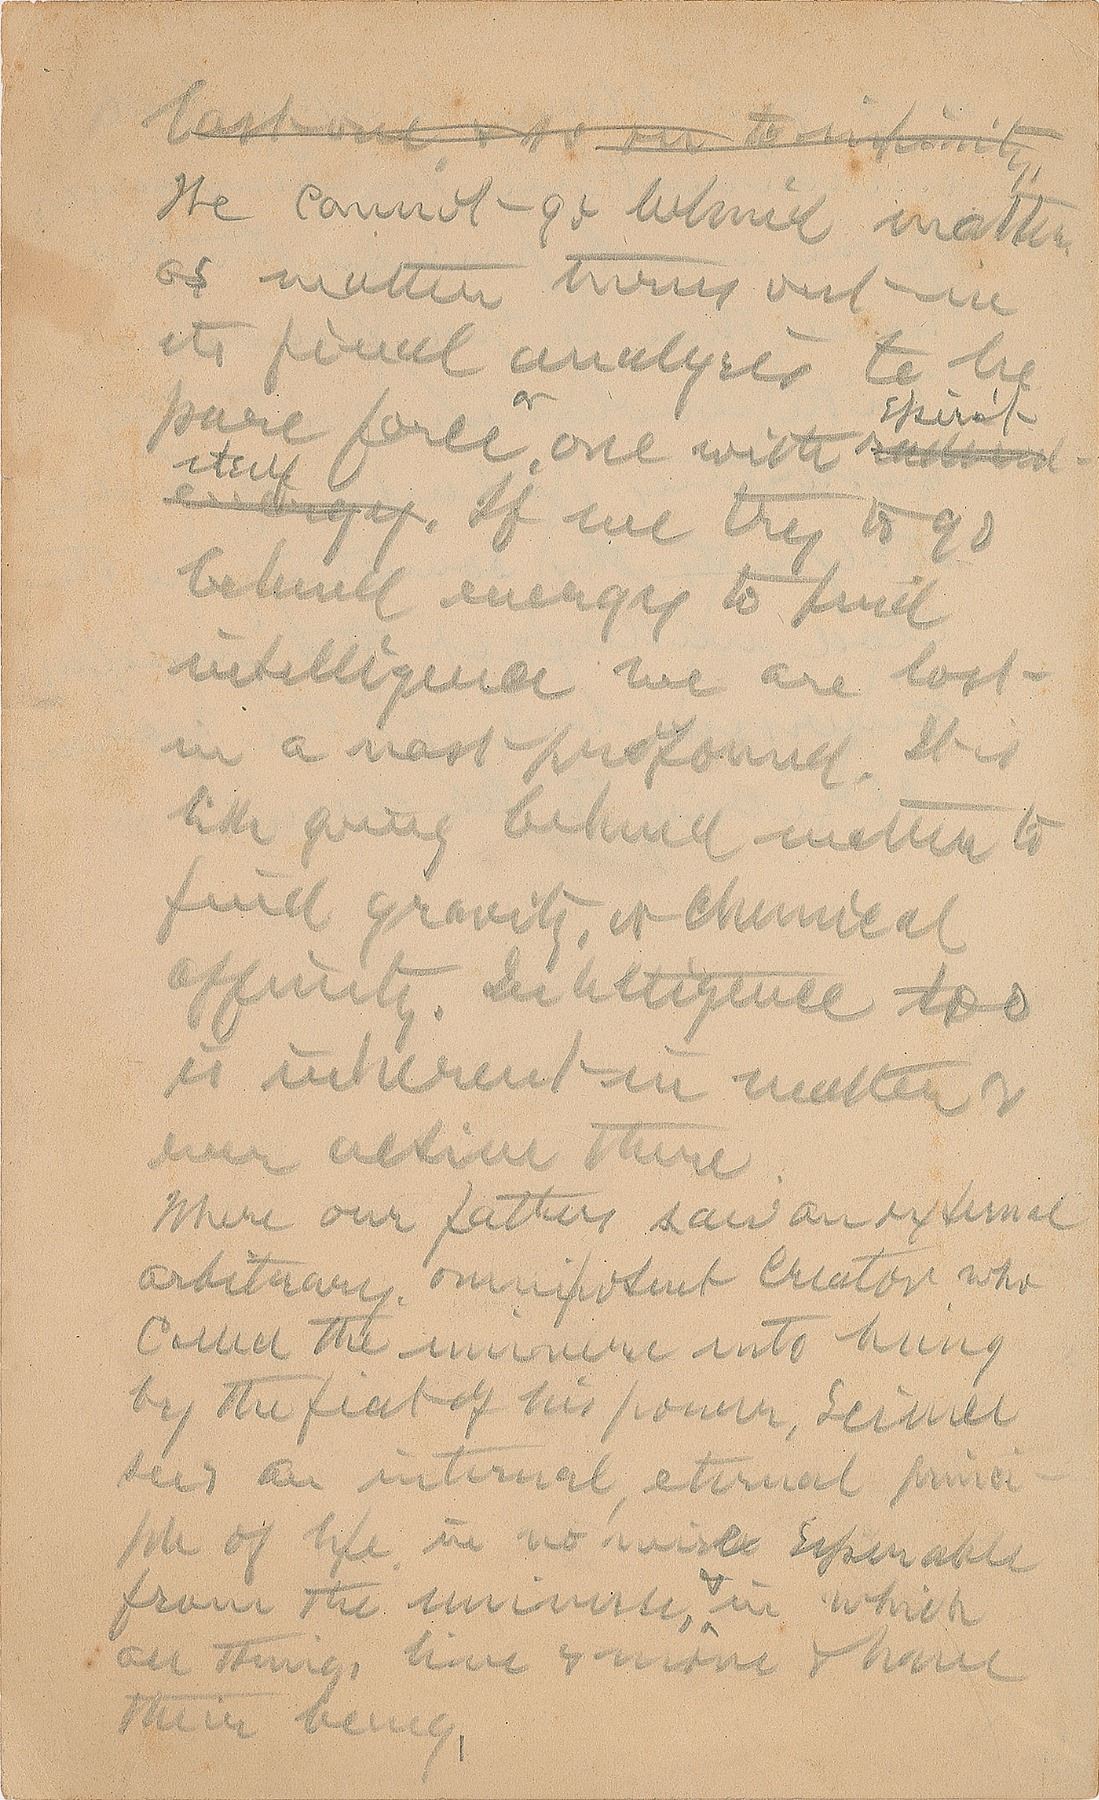 last one, & so on to infinity,
We cannot go behind matter
as matter turns out in
its final analysis to be
pure force, or one with spirit
itself energy. If we try to go
behind energy to find
intelligence we are lost
in a vast profound. It is
like going behind matter to
find gravity, or chemical
affinity. Intelligence too
is inherent in matter &
ever active there
Where our fathers saw an external
arbitrary, omnipotent Creator who
called the universe into being
by the fiat of his power, Science
sees an internal, eternal princi-
ple of life in no wise separable
from the universe, & in which
all things live & move & have
their being,